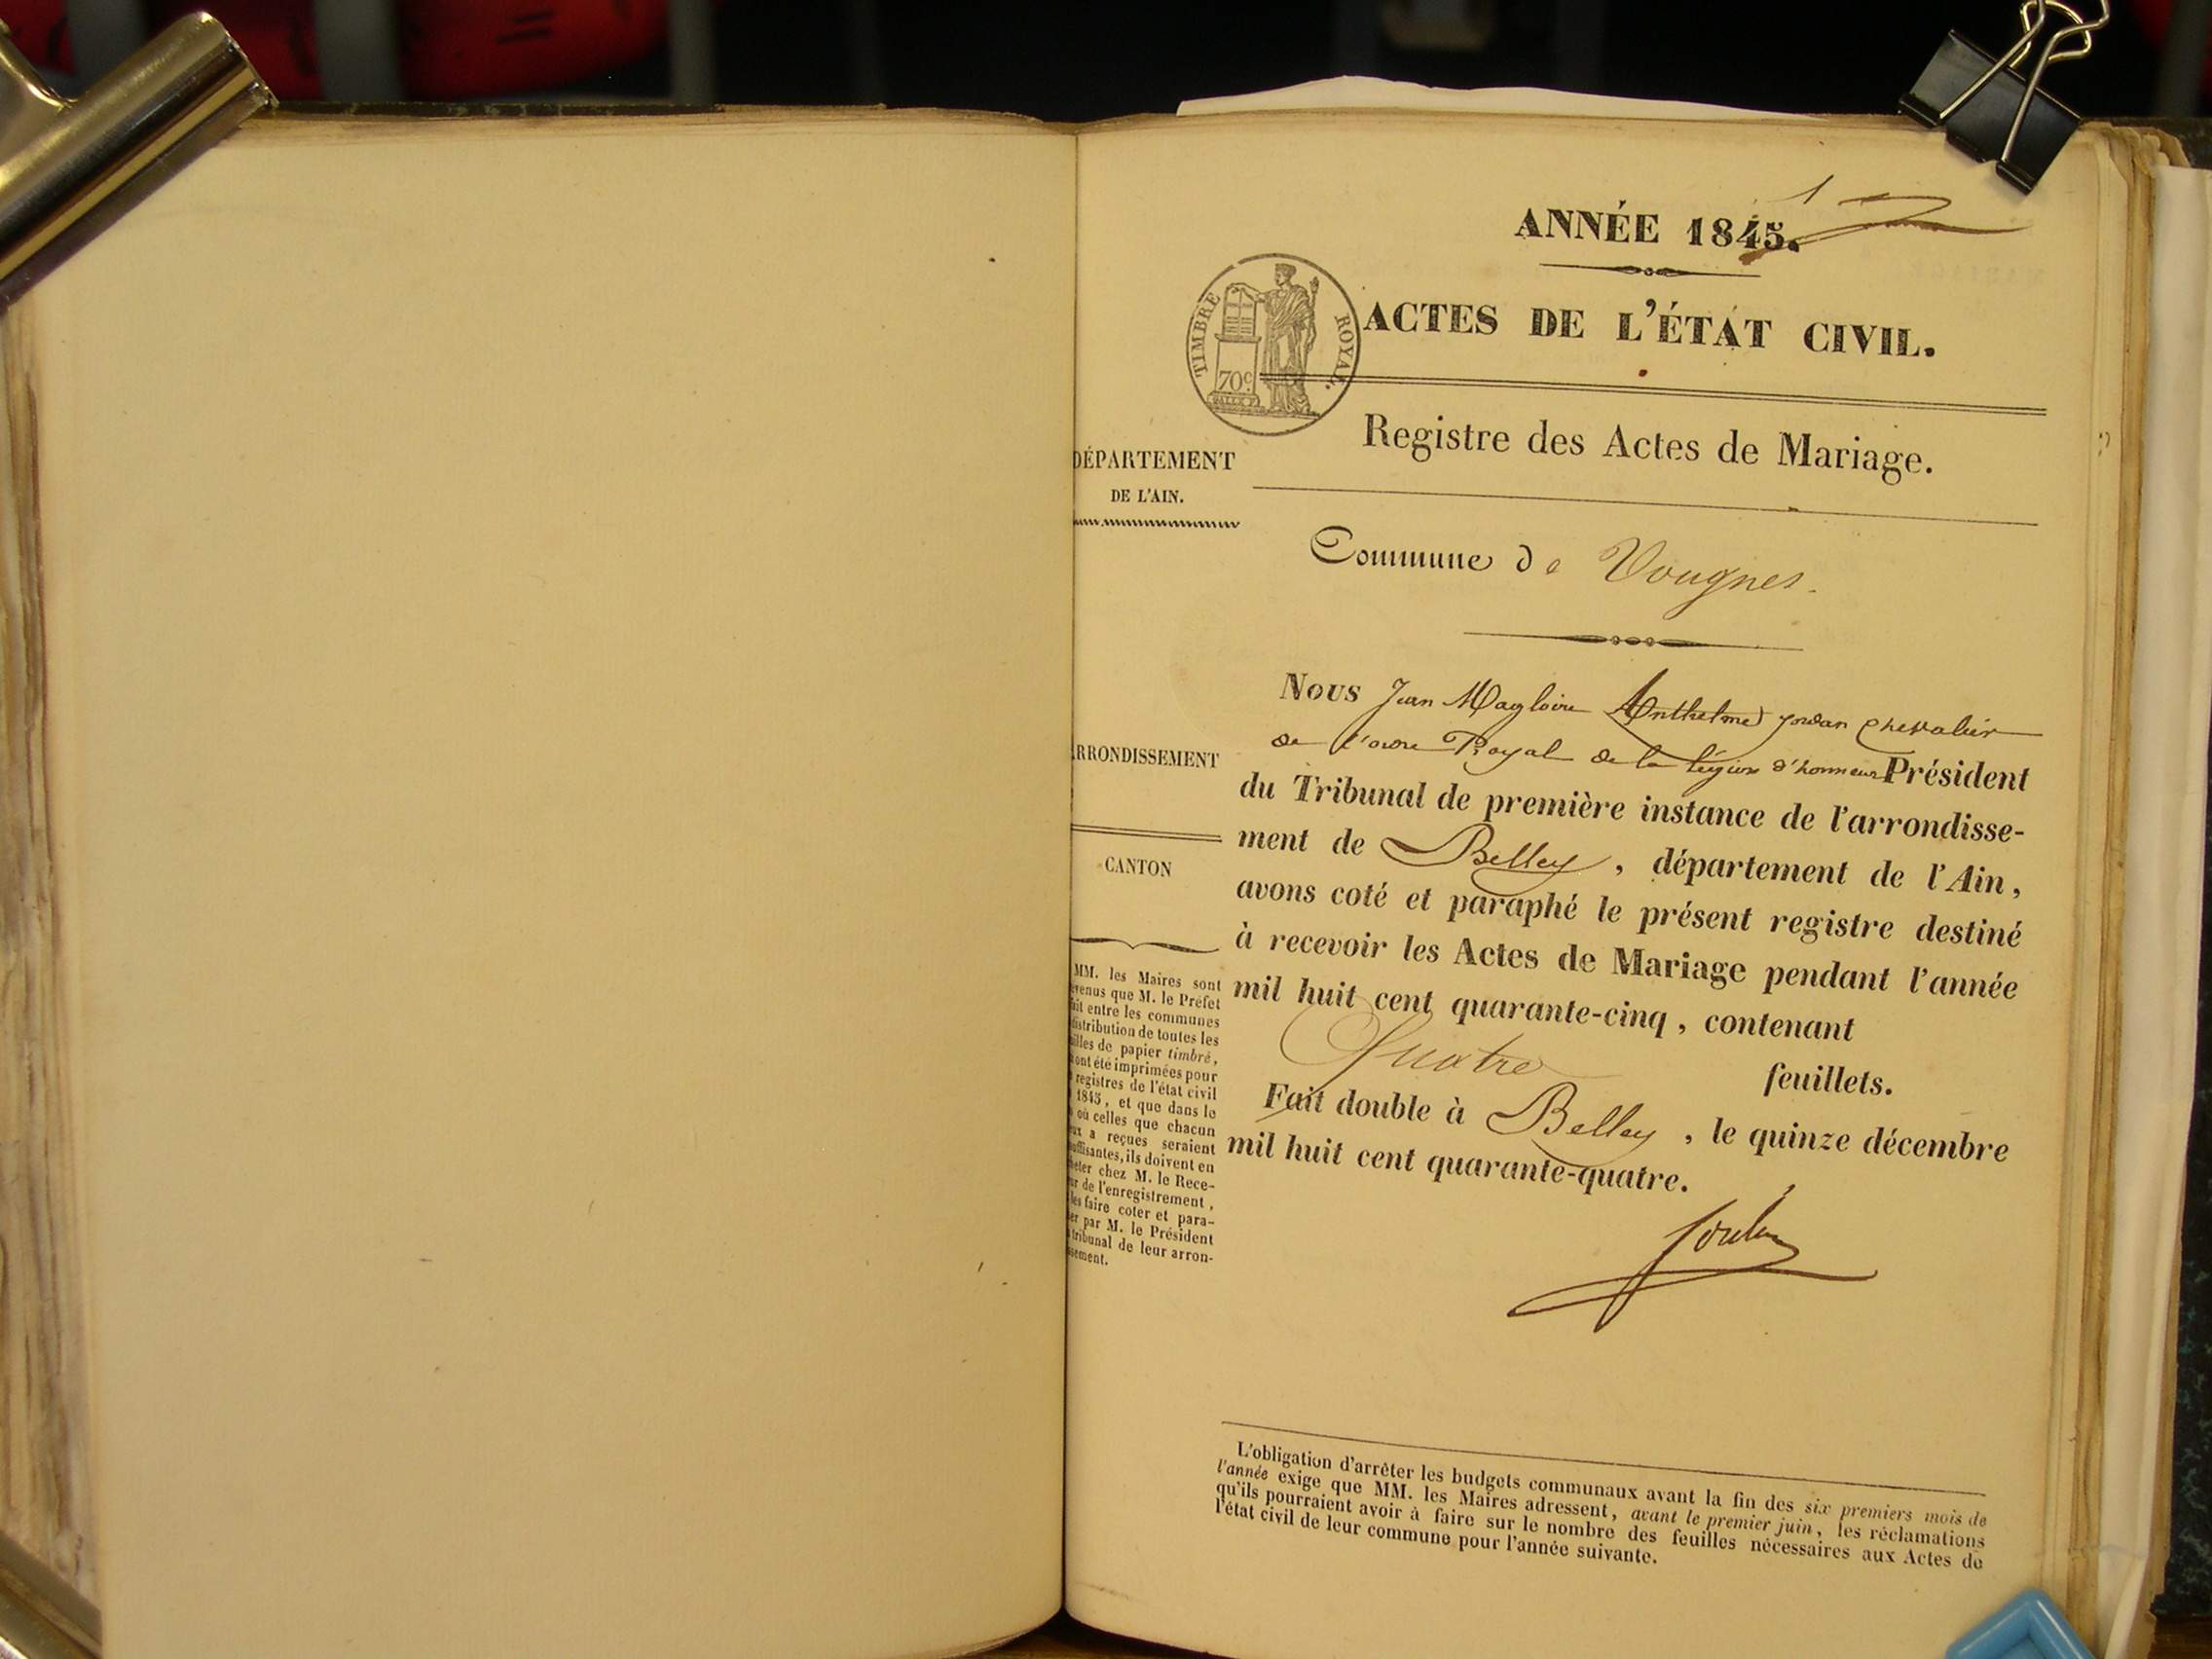 1
ANNÉE 1845.
ACTES DE L'ÉTAT CIVIL.
TIMBRE ROYAL.
70c
Registre des Actes de Mariage.
DÉPARTEMENT
DE L'AIN.
Commune de Vougnes.
Nous Jean Magloire Anthelme jordan chevalier
de l'ordre Royal de la légion d'honneur Président
RRONDISSEMENT
du Tribunal de première instance de l'arrondisse-
ment de Belley, département de l'Ain,
CANTON
avons coté et paraphé le présent registre destiné
à recevoir les Actes de Mariage pendant l'année
mil huit cent quarante-cinq, contenant
Quatre feuillets.
Fait double à Belley, le quinze décembre
mil huit cent quarante-quatre.
MM. les Maires sont
evenus que M. le Préfet
ait entre les communes
distribution de toutes les
illes de papier timbré,
ont été imprimées pour
registres de l'état civil
1845, et que dans le
où celles que chacun
eux a reçues seraient
uffisantes, ils doivent en
heter chez M. le Rece-
ur de l'enregistrement,
les faire coter et para-
er par M. le Président
tribunal de leur arron-
ssement.
L'obligation d'arrêter les budgets communaux avant la fin des six premiers mois de
l'année exige que MM. les Maires adressent, avant le premier juin, les réclamations
qu'ils pourraient avoir à faire sur le nombre des feuilles nécessaires aux Actes de
l'état civil de leur commune pour l'année suivante.